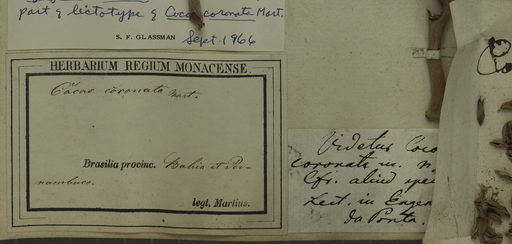 part of lectotype of Cocos coronata Mart.
S. F. GLASSMAN Sept. 1966
HERBARIUM REGIUM MONACENSE.
Cocos coronata Mart.
Brasilia provinc. Bahia et Per-
nambuco.
legt. Martius.
Videtur Coco
coronata m. n.
Cfr. aliud spec
Lect. in Engen
da Ponta.